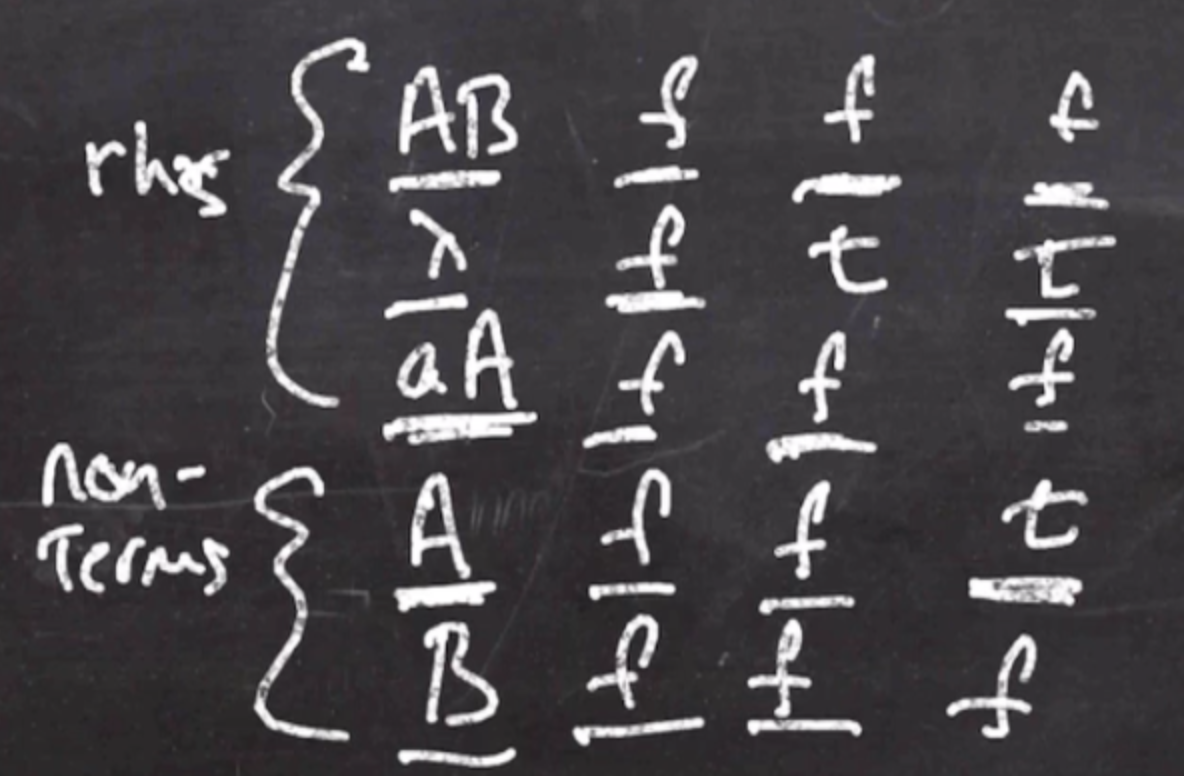 rhs { AB f f f
λ f t t
aA f f f
non-
Terms { A f f t
B f f f